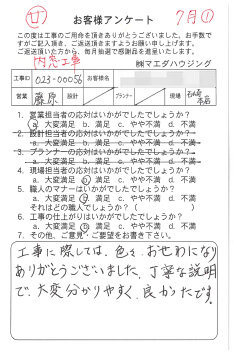 7月①
お客様アンケート
この度は工事のご用命を頂きありがとうございました。お手数で
すがご記入頂き、ご返送頂きますようお願い申し上げます。
ご返送頂いた方から、毎月抽選で感謝品を進呈いたします。
内窓工事
㈱マエダハウジング
工事ID 023-00056 お客様名
営業 藤原 設計 プランナー 現場 石崎 本店
1. 営業担当者の応対はいかがでしたでしょうか?
a. 大変満足 b. 満足 c. やや不満 d. 不満
2. 設計担当者の応対はいかがでしたでしょうか?
a. 大変満足 b. 満足 c. やや不満 d. 不満
3. プランナーの応対はいかがでしたでしょうか?
a. 大変満足 b. 満足 c. やや不満 d. 不満
4. 現場担当者の応対はいかがでしたでしょうか?
a. 大変満足 b. 満足 c. やや不満 d. 不満
5. 職人のマナーはいかがでしたでしょうか?
a. 大変満足 b. 満足 c. やや不満 d. 不満
それはどの職人でしょうか?( )
6. 工事の仕上がりはいかがでしたでしょうか?
a. 大変満足 b. 満足 c. やや不満 d. 不満
7. その他、ご意見・ご要望をお書き下さい。
工事に際しては、色々、おせわになり
ありがとうございました。丁寧な説明
で、大変分かりやすく、良かったです。